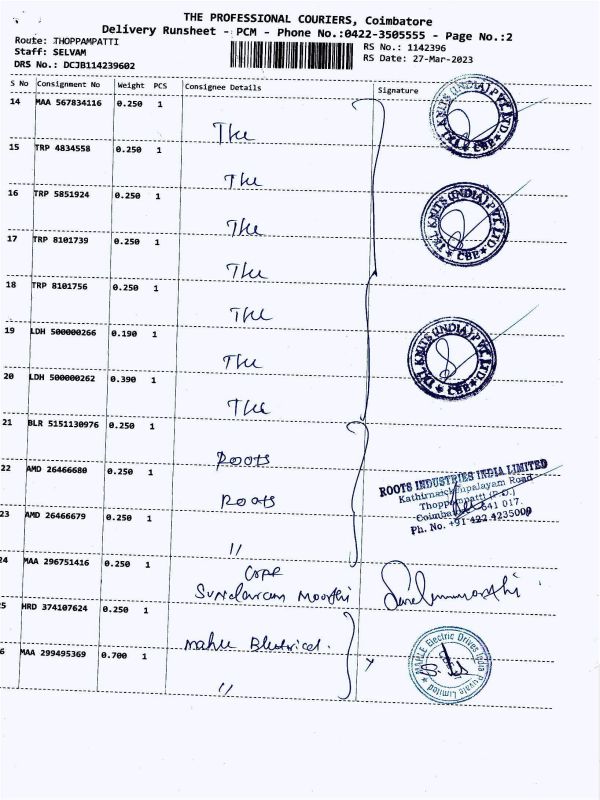 THE PROFESSIONAL COURIERS, Coimbatore
Delivery Runsheet - PCM - Phone No.:0422-3505555 - Page No.:2
Route: THOPPAMPATTI
Staff: SELVAM
DRS No.: DCJB114239602
RS No.: 1142396
RS Date: 27-Mar-2023
S No Consignment No Weight PCS Consignee Details Signature
14 MAA 567834116 0.250 1
15 TRP 4834558 0.250 1
16 TRP 5851924 0.250 1
17 TRP 8101739 0.250 1
18 TRP 8101756 0.250 1
19 LDH 500000266 0.190 1
20 LDH 500000262 0.390 1
21 BLR 5151130976 0.250 1
Roots
22 AMD 26466680 0.250 1
Roots
23 AMD 26466679 0.250 1
"
24 MAA 296751416 0.250 1
Sundaram Moorthi
25 HRD 374107624 0.250 1
26 MAA 299495369 0.700 1
"
KNITS (INDIA) PVT. LTD. CBE
KNITS (INDIA) PVT. LTD. CBE
KNITS (INDIA) PVT. LTD. CBE
ROOTS INDUSTRIES INDIA LIMITED
Road
Thoppampatti (P.O.)
Coimbatore 641 017.
Ph. No. +91 422 4235000
MAPLE Electric Drives India Private Limited